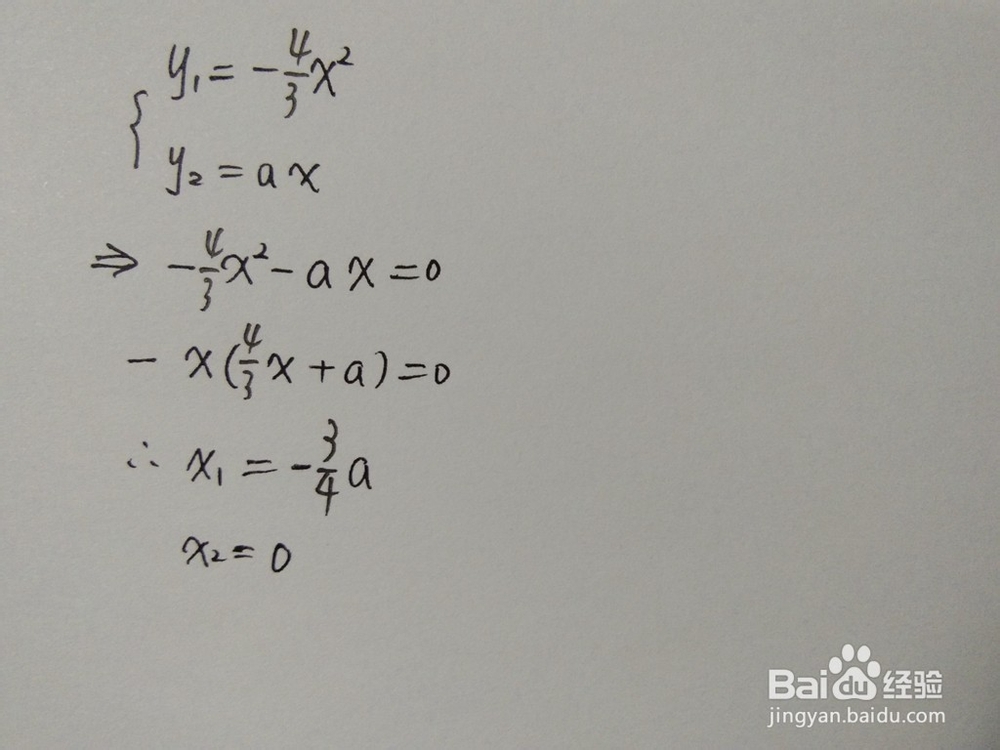 y₁ = -4/3 x²
y₂ = a x
⇒ -4/3 x² - a x = 0
- x(4/3 x + a) = 0
∴ x₁ = -3/4 a
x₂ = 0
Baidu 经验
jingyan.baidu.com